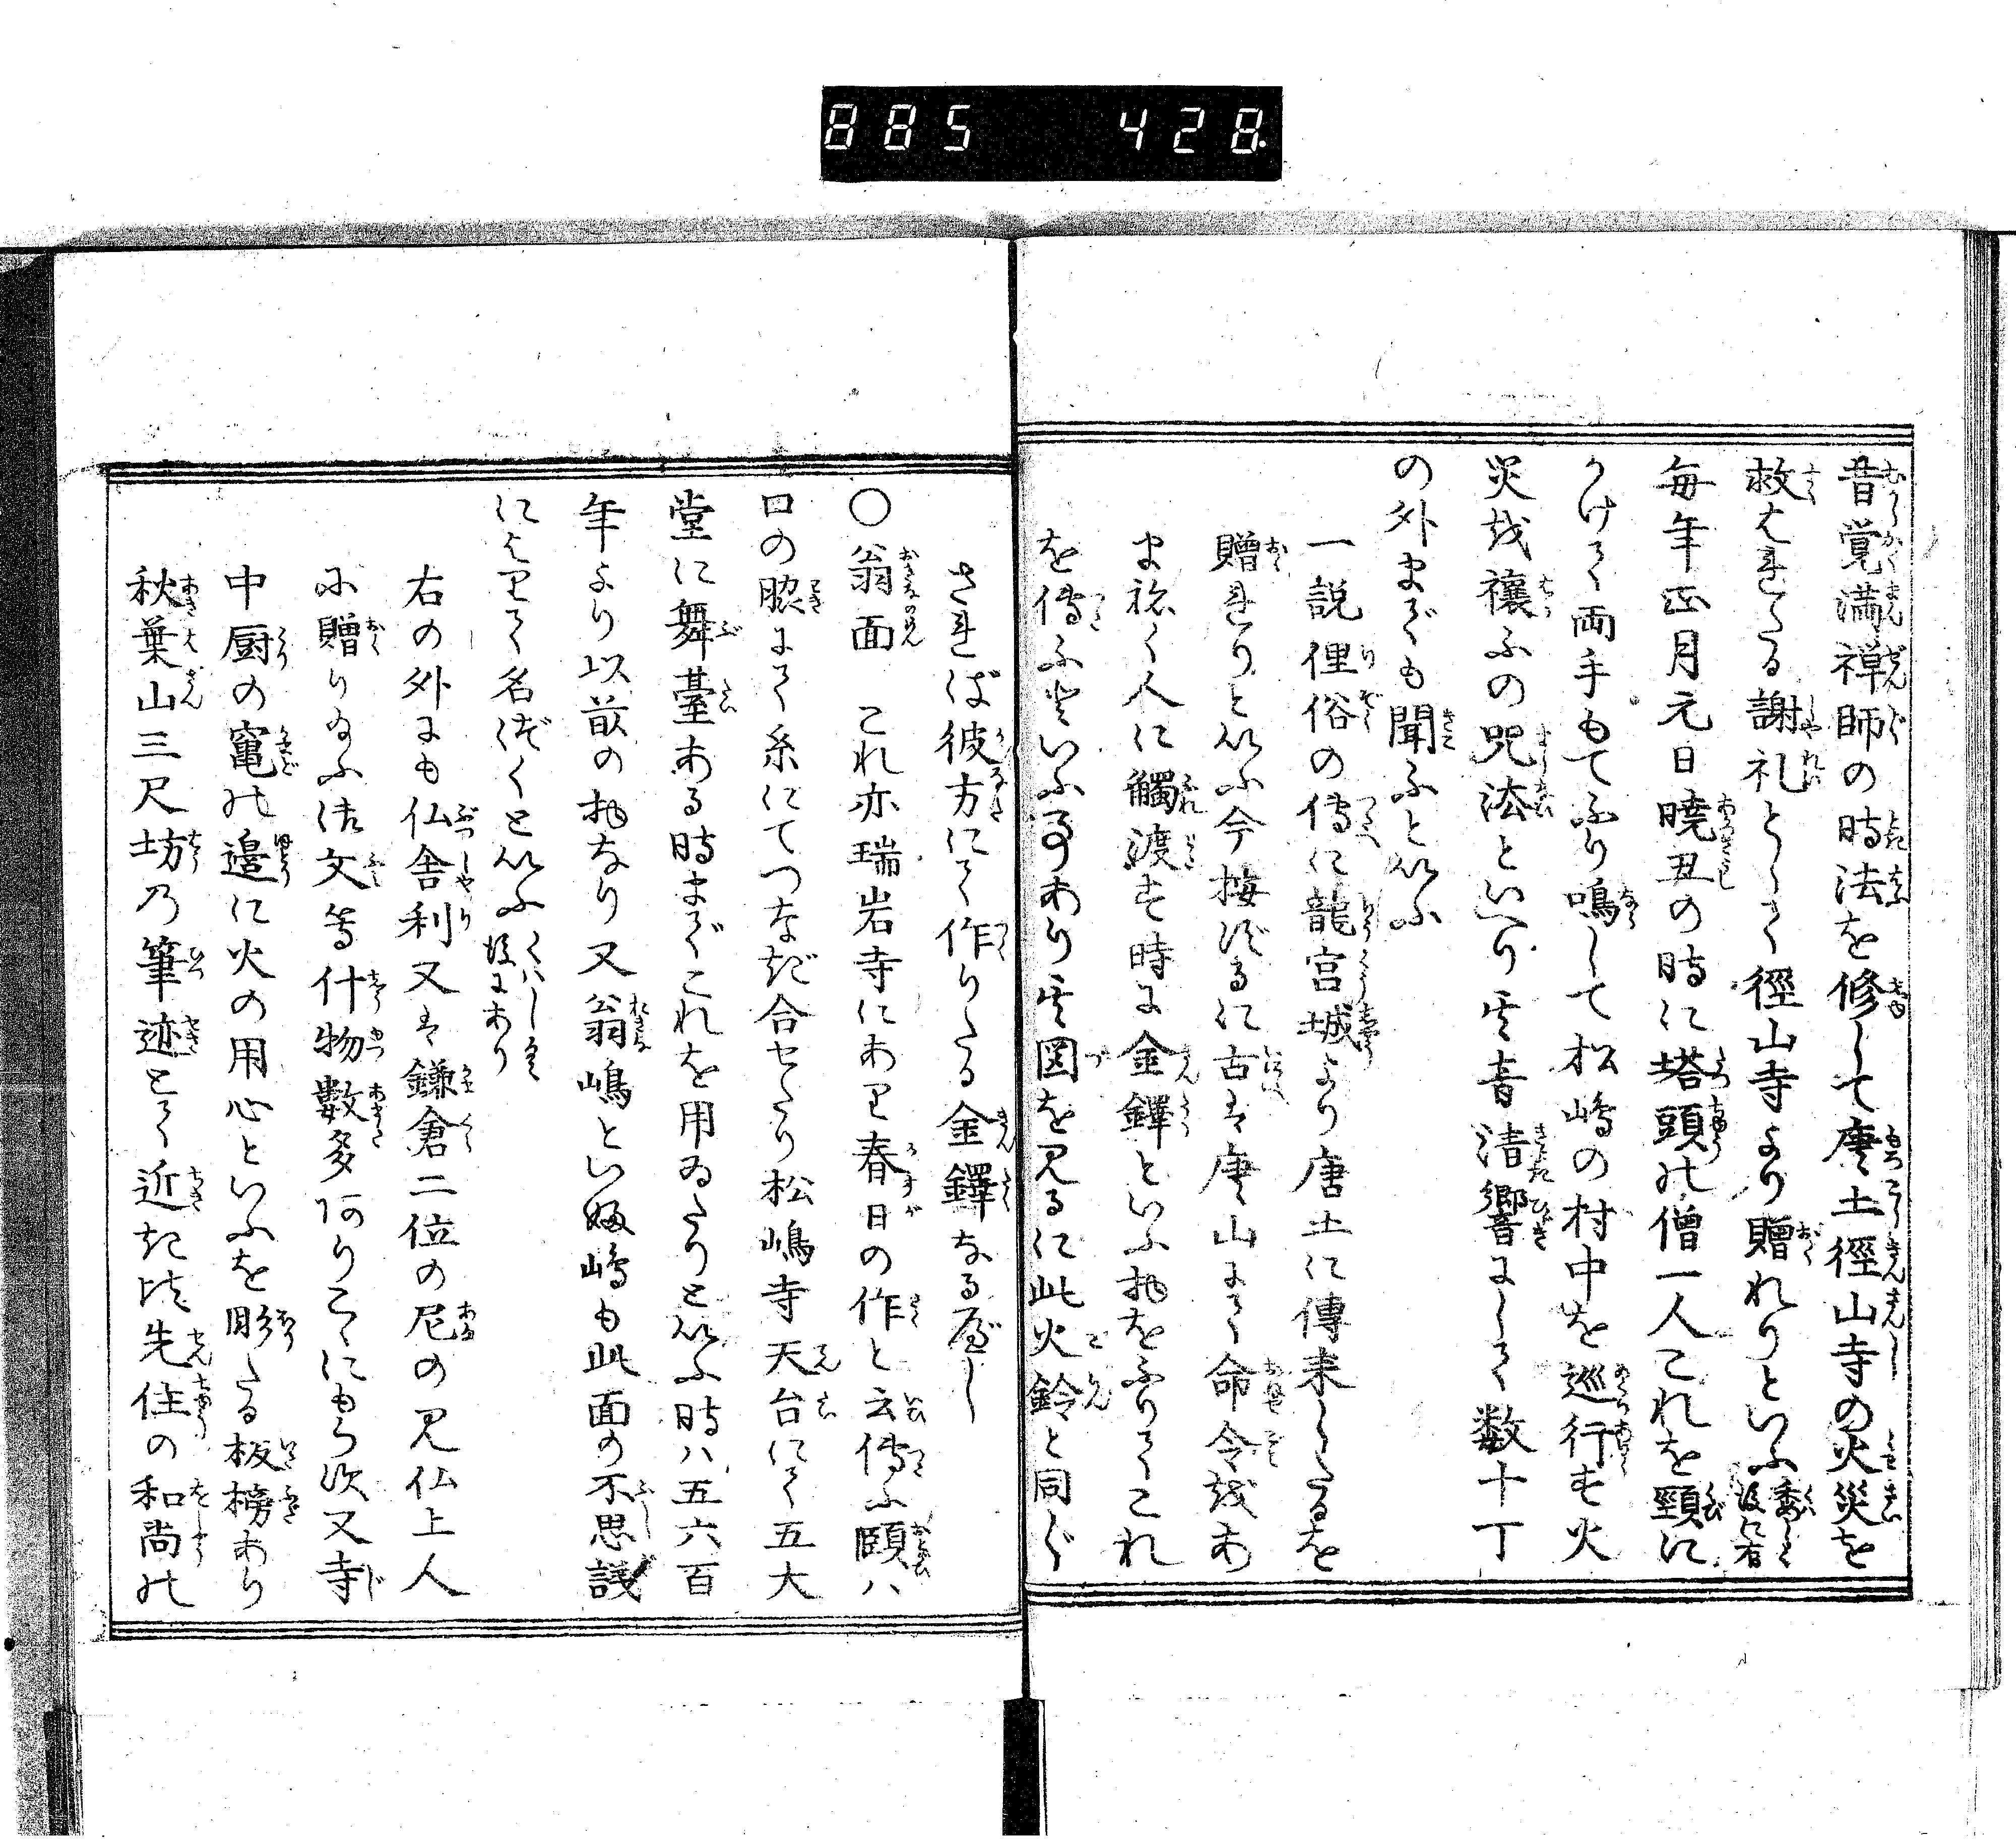 885 428
昔覚満禅師の時法を修して唐土徑山寺の火災を
救はれたる謝礼とて徑山寺より贈れりといふ委しくは後に有
毎年正月元日暁丑の時に塔頭の僧一人これを頸に
かけて両手もてふり鳴して松嶋の村中を巡行す火
災を禳ふの咒法といへり其音清響にして数十丁
の外までも聞ふといふ
一説俚俗の傳に龍宮城より唐土に傳来したるを
贈れりといふ今按ずるに古は唐山にて命令をあ
まねく人に觸渡す時に金鐸といふ物をふりてこれ
を傳ふといふ事あり其図を見るに此火鈴と同じ
されば彼方にて作りたる金鐸なるべし
〇翁面 これ亦瑞岩寺にあり春日の作と云傳ふ頤ハ
口の脇にて糸にてつなぎ合せたり松嶋寺天台にて五大
堂に舞臺ある時までこれを用ゐたりといふ時ハ五六百
年より以前の物なり又翁嶋といふ嶋も此面の不思議
によりて名づくといふくハしくは後にあり
右の外にも仏舎利又は鎌倉二位の尼の見仏上人
に贈り給ふ法文等什物數多ありこゝにもらす又寺
中厨の竃の邉に火の用心といふを彫たる板榜あり
秋葉山三尺坊の筆迹とて近き比先住の和尚の